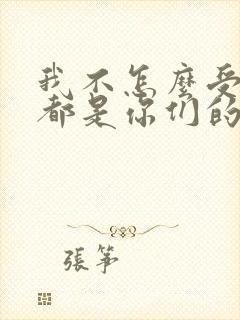 我不怎麼受
都是你们的
張筝